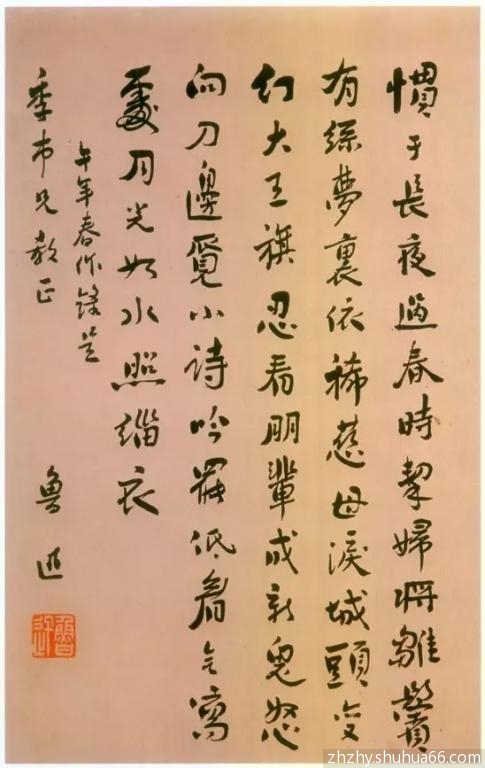 慣于長夜過春時挈婦將雛鬢
有絲夢裏依稀慈母淚城頭變
幻大王旗忍看朋輩成新鬼怒
向刀邊覓小詩吟罷低眉无寫
處月光如水照緇衣
午年春作錄呈
季市兄教正
魯迅
魯迅
zhzhyshuhua66.com